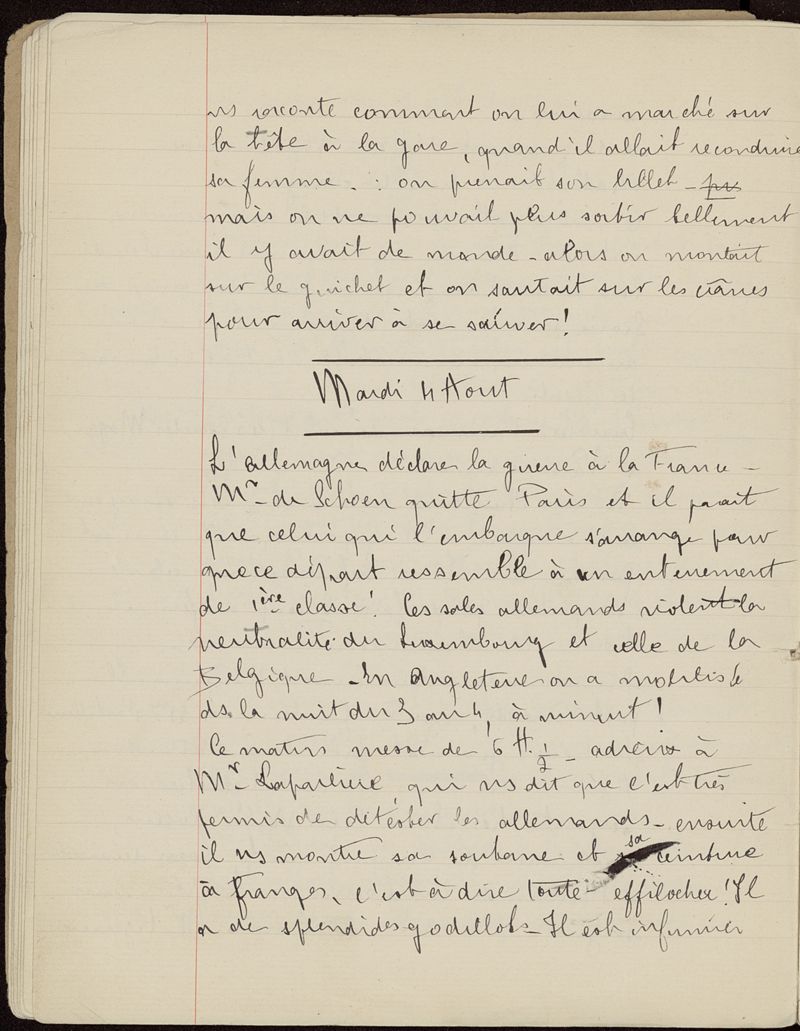 ns raconte comment on lui a marché sur
la tête à la gare, quand il allait reconduire
sa femme. : on prenait son billet - pu
mais on ne pouvait plus sortir tellement
il y avait de monde - alors on montait
sur le guichet et on sautait sur les crânes
pour arriver à se sauver!
Mardi 4 Aout
L'allemagne déclare la guerre à la France -
Mr de Schoen quitte Paris et il parait
que celui qui l'embarque s'arrange pour
que ce départ ressemble à un enterrement
de 1ère classe! Ces sales allemands violent la
neutralité du Luxembourg et celle de la
Belgique - En Angleterre on a mobilisé
ds. la nuit du 3 au 4, à minuit!
Ce matin messe de 6 H. 1/2 - adieux à
Mr Laparlière qui ns dit que c'est très
permis de détester les allemands - ensuite
il ns montre sa soutane et sa ceinture
à franges, c'est à dire toute effilochée! Il
a de splendides godillots - Il est infirmier